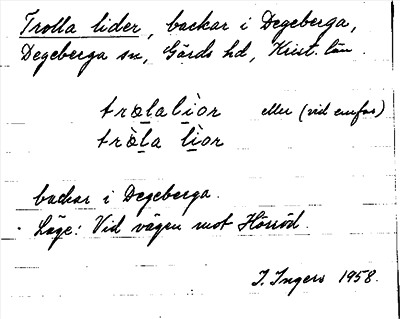 Trolla lider, backar i Degeberga,
Degeberga sn, Gärds hd, Krist. län.
trælalìor eller (vid emfas)
træ̀la lìor
backar i Degeberga.
Läge: Vid vägen mot Hörröd.
I. Ingers 1958.